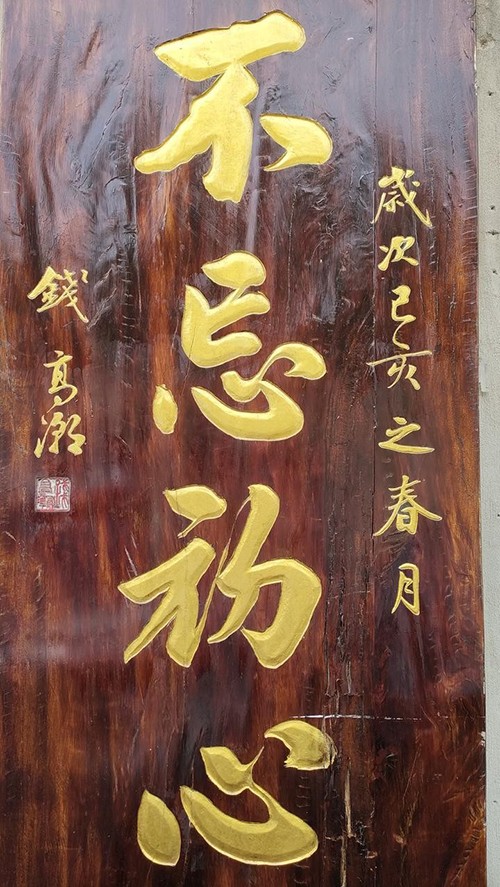 歲次己亥之春月
不忘初心
錢高潮